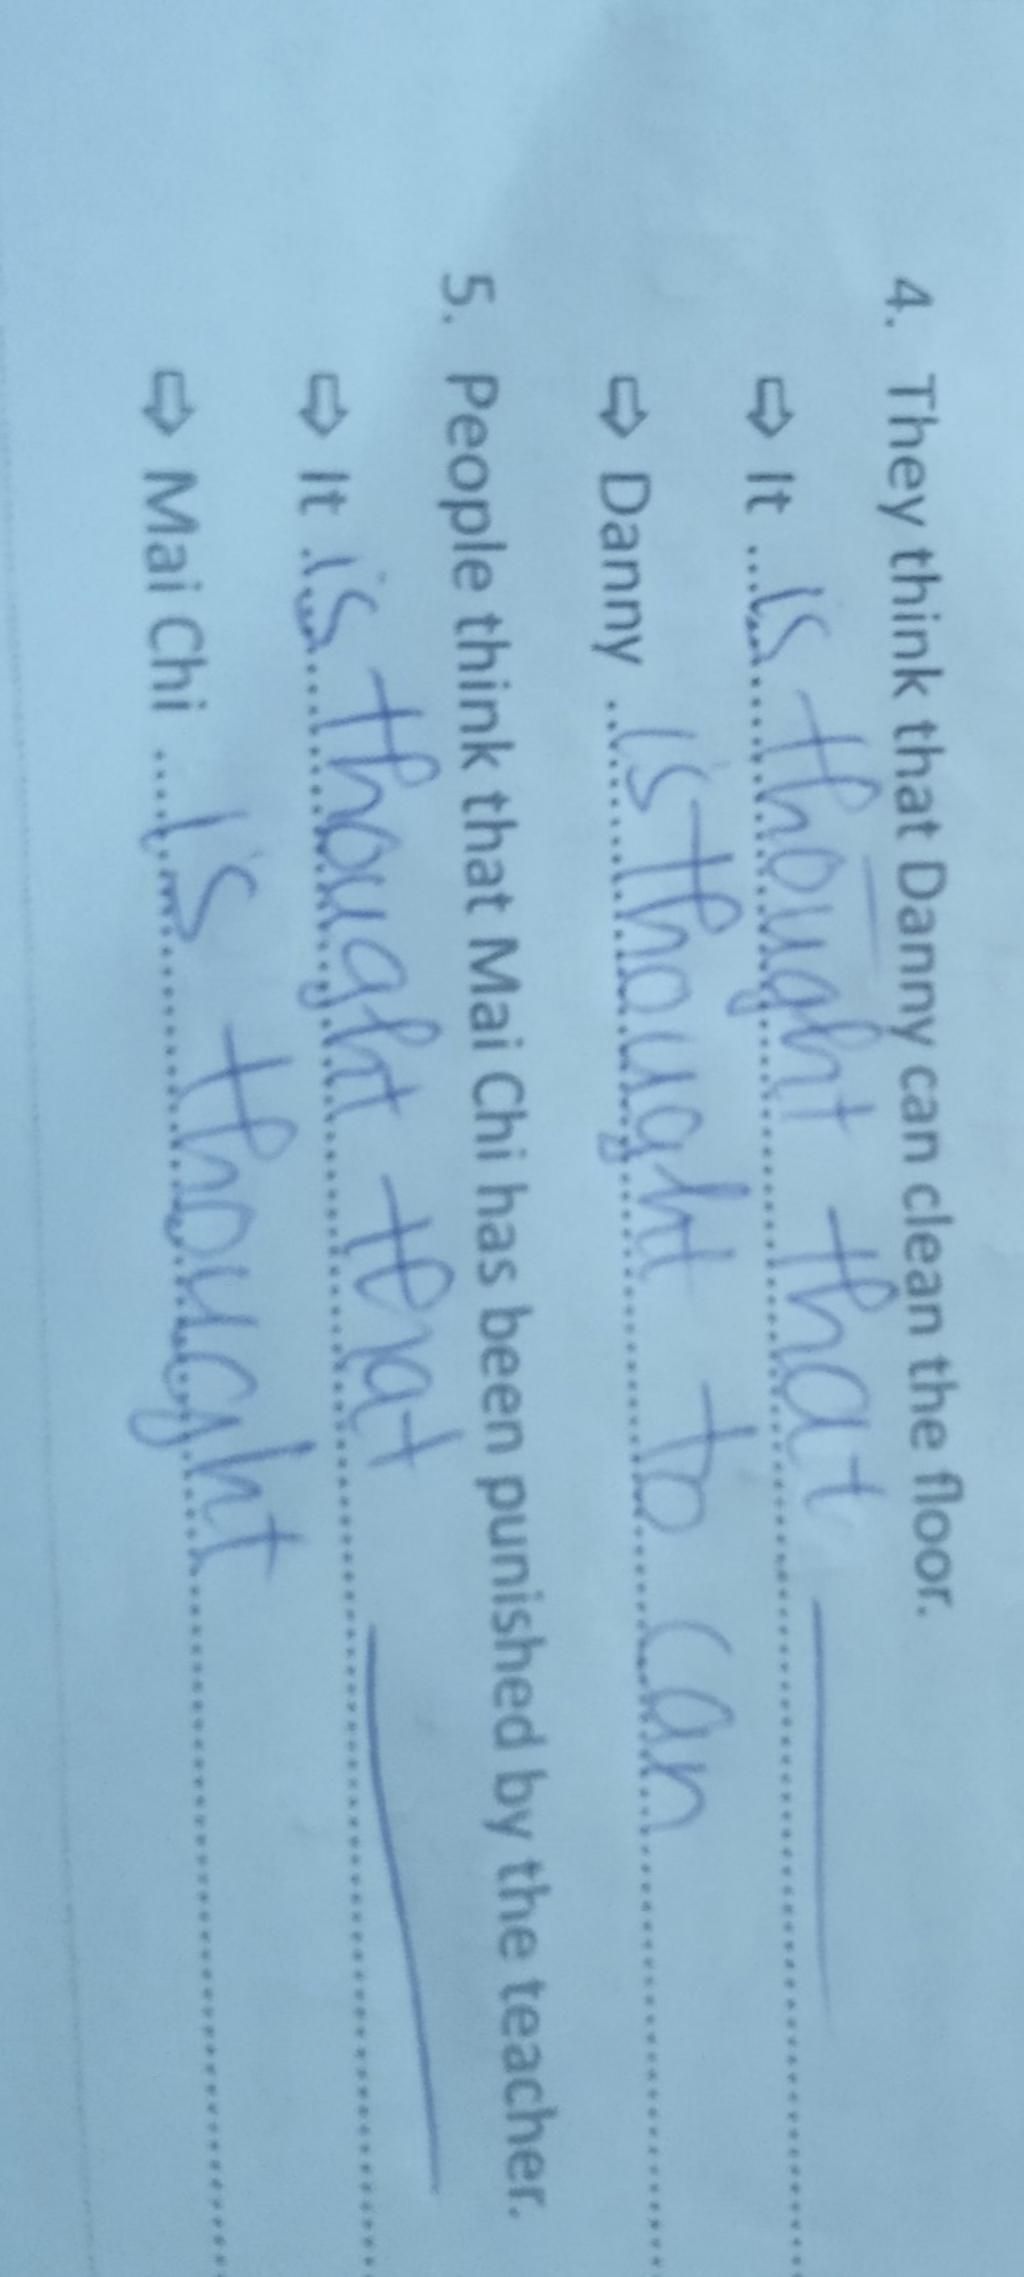 4. They think that Danny can clean the floor.
⇨ It ....is thought that ____
⇨ Danny ..is thought to can
5. People think that Mai Chi has been punished by the teacher.
⇨ It .is thought that ____
⇨ Mai Chi ....is thought